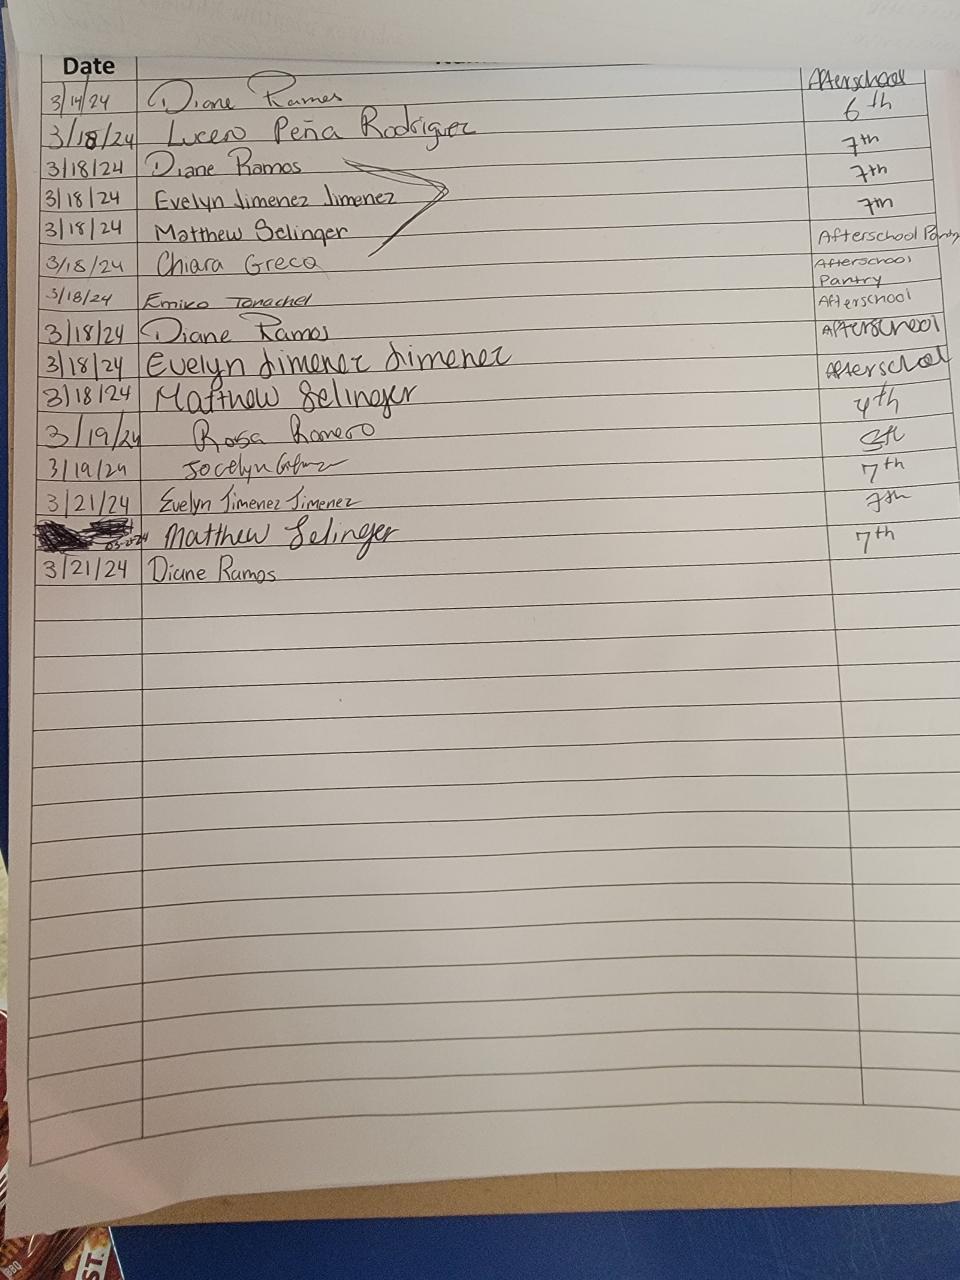 Date
3/14/24 Diane Ramos Afterschool
3/18/24 Lucero Peña Rodriguez 6th
3/18/24 Diane Ramos 7th
3/18/24 Evelyn Jimenez Jimenez 7th
3/18/24 Matthew Selinger 7th
3/18/24 Chiara Greco Afterschool Pantry
3/18/24 Emiko Afterschool Pantry
3/18/24 Diane Ramos Afterschool
3/18/24 Evelyn Jimenez Jimenez Afterschool
3/18/24 Matthew Selinger Afterschool
3/19/24 Rosa Romero 4th
3/19/24 Jocelyn
3/21/24 Evelyn Jimenez Jimenez 7th
Matthew Selinger 7th
3/21/24 Diane Ramos 7th
ST.
BBQ